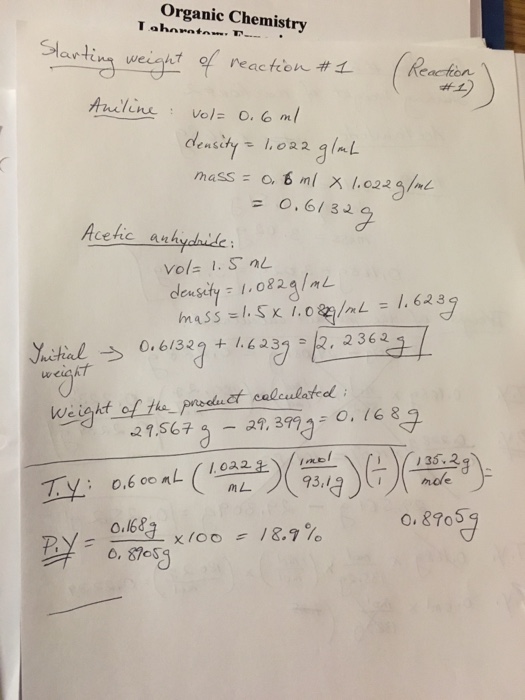 Organic Chemistry
Starting weight of reaction #1 (Reaction #1)
Aniline : vol = 0.6 ml
density = 1.022 g/mL
mass = 0.6 ml X 1.022 g/mL
= 0.6132 g
Acetic anhydride:
vol = 1.5 mL
density = 1.082 g/mL
mass = 1.5 x 1.082g/mL = 1.623g
Ynitial weight → 0.6132g + 1.623g = 2.2362 g
Weight of the product calculated :
29.567 g - 29.399 g = 0.168 g
T.Y: 0.600 mL (1.022 g / mL) (1 mol / 93.1g) (1/1) (135.2g / mole) =
0.8905g
P.Y = 0.168g / 0.8905g x100 = 18.9%